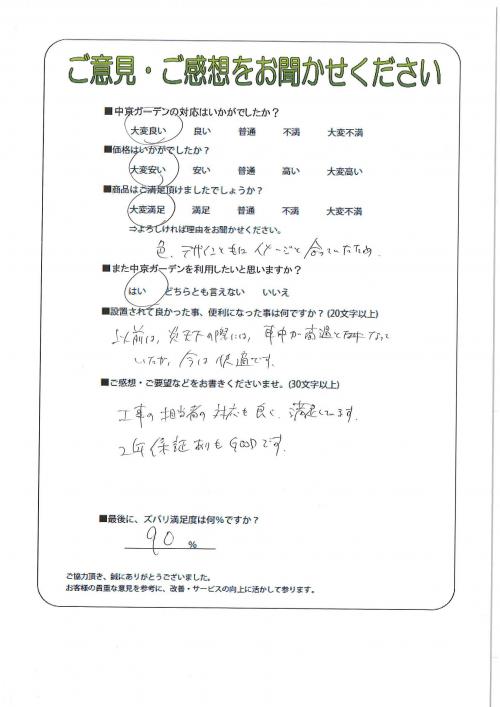 ご意見・ご感想をお聞かせください
■中京ガーデンの対応はいかがでしたか？
大変良い 良い 普通 不満 大変不満
■価格はいかがでしたか？
大変安い 安い 普通 高い 大変高い
■商品はご満足頂けましたでしょうか？
大変満足 満足 普通 不満 大変不満
⇒よろしければ理由をお聞かせください。
色、デザインともにイメージと合っていたため
■また中京ガーデンを利用したいと思いますか？
はい どちらとも言えない いいえ
■設置されて良かった事、便利になった事は何ですか？(20文字以上)
以前は、炎天下の際には、車中が高温となって
いたが、今は快適です。
■ご感想・ご要望などをお書きくださいませ。(30文字以上)
工事の担当者の対応も良く、満足しています。
2年保証ありもGOODです。
■最後に、ズバリ満足度は何%ですか？
90 %
ご協力頂き、誠にありがとうございました。
お客様の貴重な意見を参考に、改善・サービスの向上に活かして参ります。